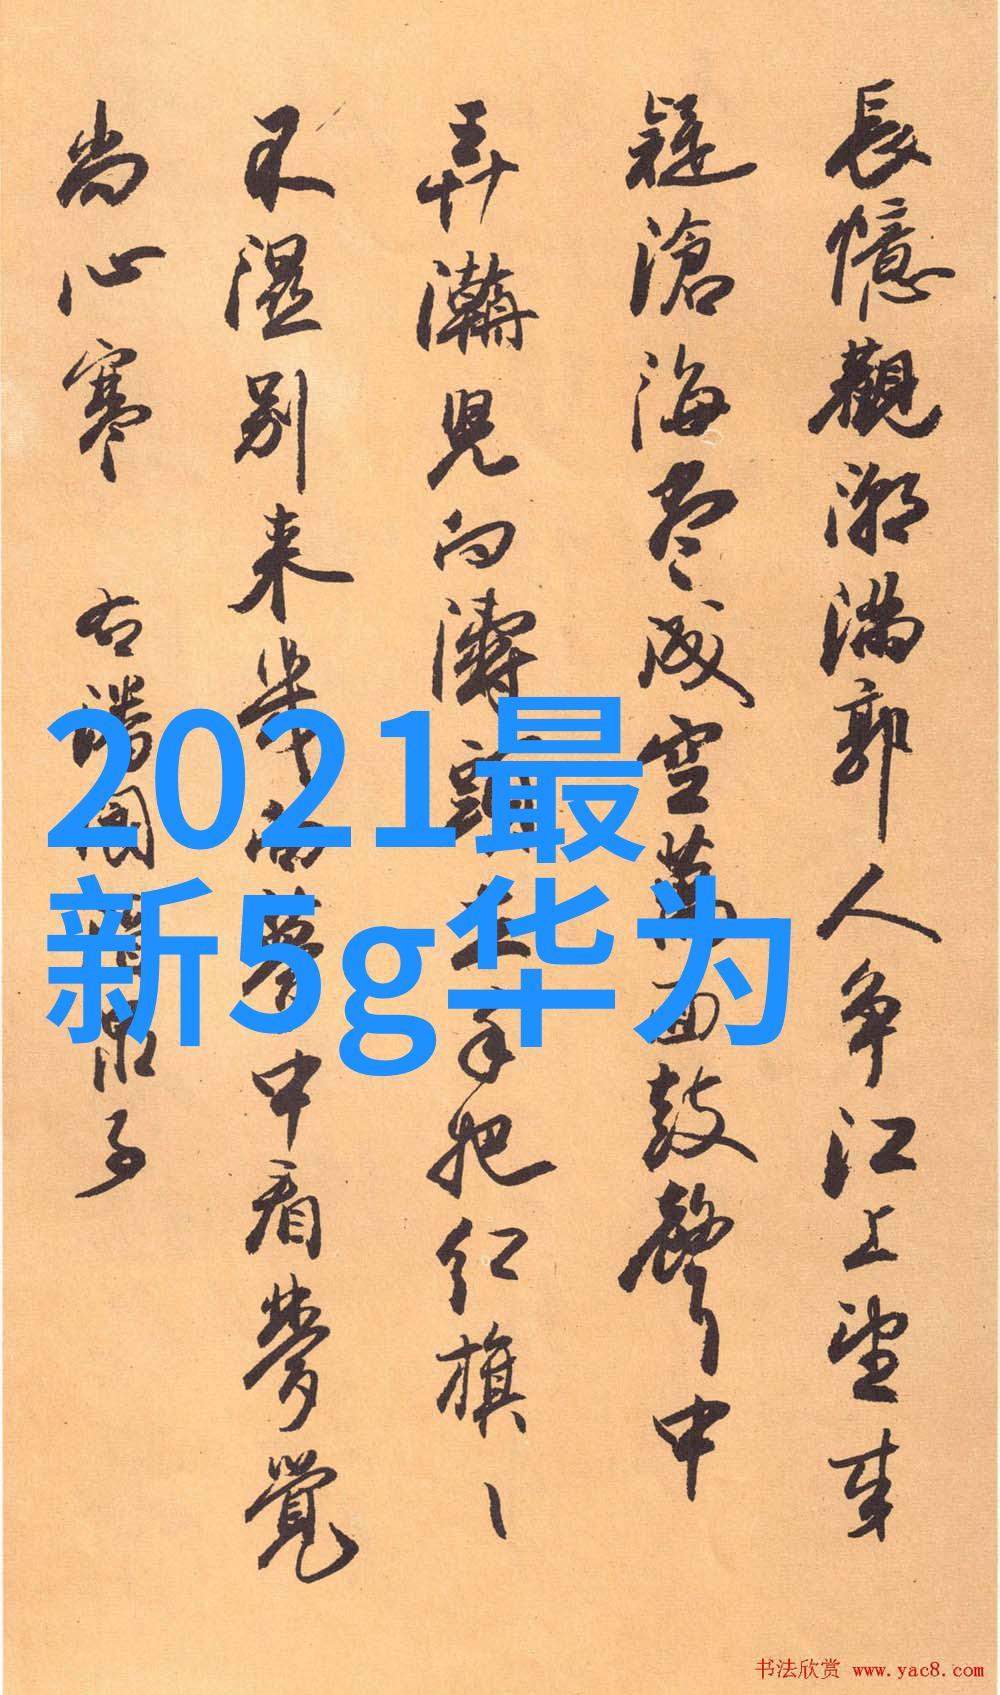 長憶觀潮滿郭人爭江上望来
疑滄海尽成空萬面鼓聲中
弄濤児向濤頭立手把红旗丶
不濕别来幾向夢中看夢覺
尚心寒 右潘閬酒泉子
2021最
新5g华为
书法欣赏 www.yac8.com